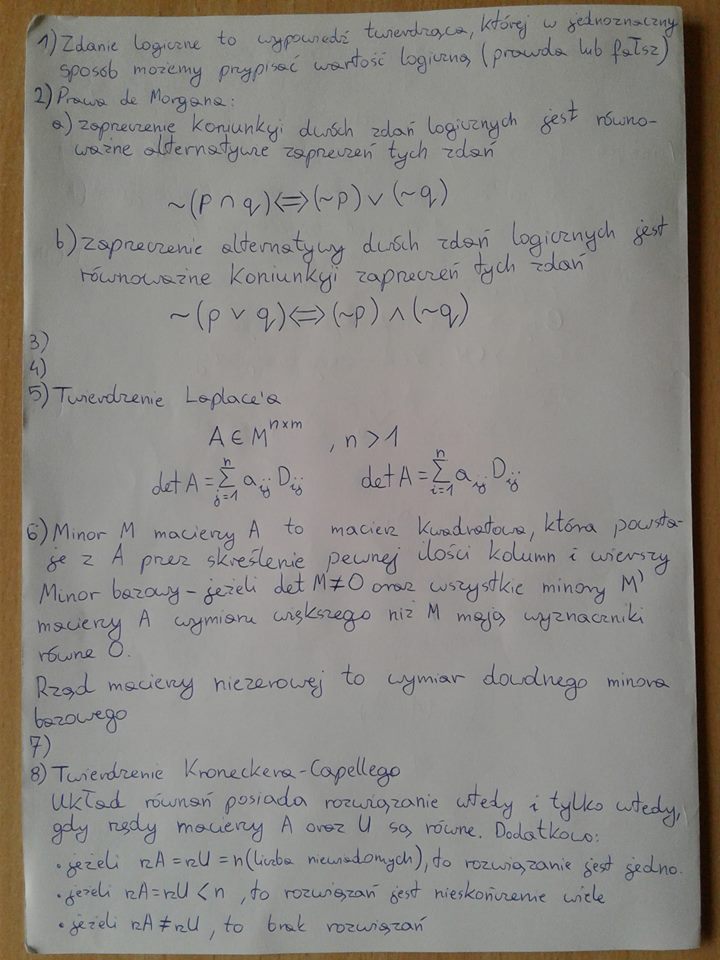 1) Zdanie logiczne to wypowiedź twierdząca, której w jednoznaczny
sposób możemy przypisać wartość logiczną (prawda lub fałsz)
2) Prawa de Morgana:
a) zaprzeczenie koniunkcji dwóch zdań logicznych jest równo-
ważne alternatywie zaprzeczeń tych zdań
~(p ∩ q) ⇔ (~p) ∨ (~q)
b) zaprzeczenie alternatywy dwóch zdań logicznych jest
równoważne koniunkcji zaprzeczeń tych zdań
~(p ∨ q) ⇔ (~p) ∧ (~q)
3)
4)
5) Twierdzenie Laplace'a
A ∈ M^{n×m} , n > 1
det A = \sum_{j=1}^{n} a_{ij} D_{ij} det A = \sum_{i=1}^{n} a_{ij} D_{ij}
6) Minor M macierzy A to macierz kwadratowa, która powsta-
je z A przez skreślenie pewnej ilości kolumn i wierszy
Minor bazowy - jeżeli det M ≠ 0 oraz wszystkie minory M'
macierzy A wymiaru większego niż M mają wyznaczniki
równe 0.
Rząd macierzy niezerowej to wymiar dowolnego minora
bazowego
7)
8) Twierdzenie Kroneckera-Capellego
Układ równań posiada rozwiązanie wtedy i tylko wtedy,
gdy rzędy macierzy A oraz U są równe. Dodatkowo:
• jeżeli rzA = rzU = n (liczba niewiadomych), to rozwiązanie jest jedno.
• jeżeli rzA = rzU < n , to rozwiązań jest nieskończenie wiele
• jeżeli rzA ≠ rzU , to brak rozwiązań